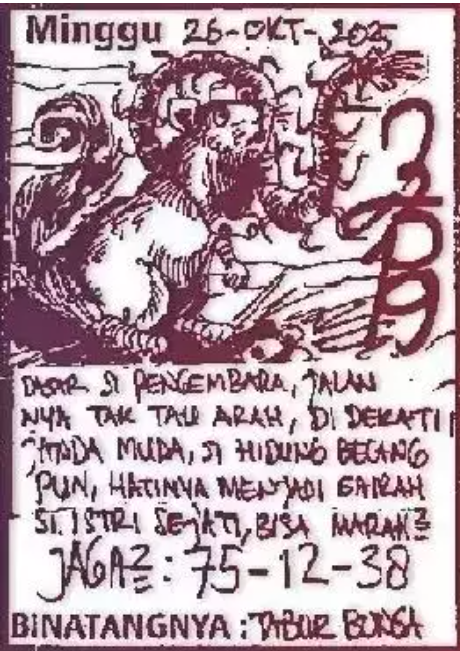 Minggu 26-OKT-2025
DASAR SI PENGEMBARA, JALAN
NYA TAK TAU ARAH, DI DEKATI
JANDA MUDA, SI HIDUNG BELANG
PUN, HATINYA MENJADI GAIRAH
SI ISTRI SEJATI, BISA MARAH2
JAGA2: 75-12-38
BINATANGNYA: TABUR BUNGA